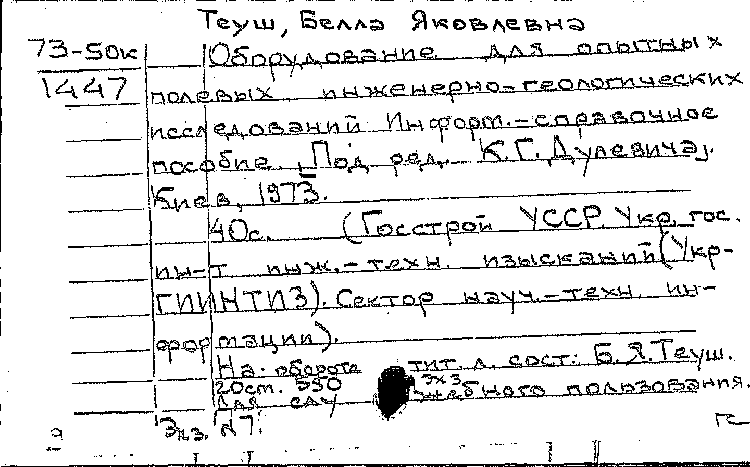 Теуш, Белла Яковлевна
73-50к Оборудование для опытных
1447 полевых инженерно-геологических
исследований Информ.-справочное
пособие. [Под ред. К.Г. Дулевича].
Киев, 1973.
40с. (Госстрой УССР. Укр. гос.
ин-т инж.-техн. изысканий (Укр-
ГИИНТИЗ). Сектор науч.-техн. ин-
формации).
На обороте тит. л. сост.: Б.Я. Теуш.
20ст. 550 экз
Для служебного пользования.
Экз. №7.